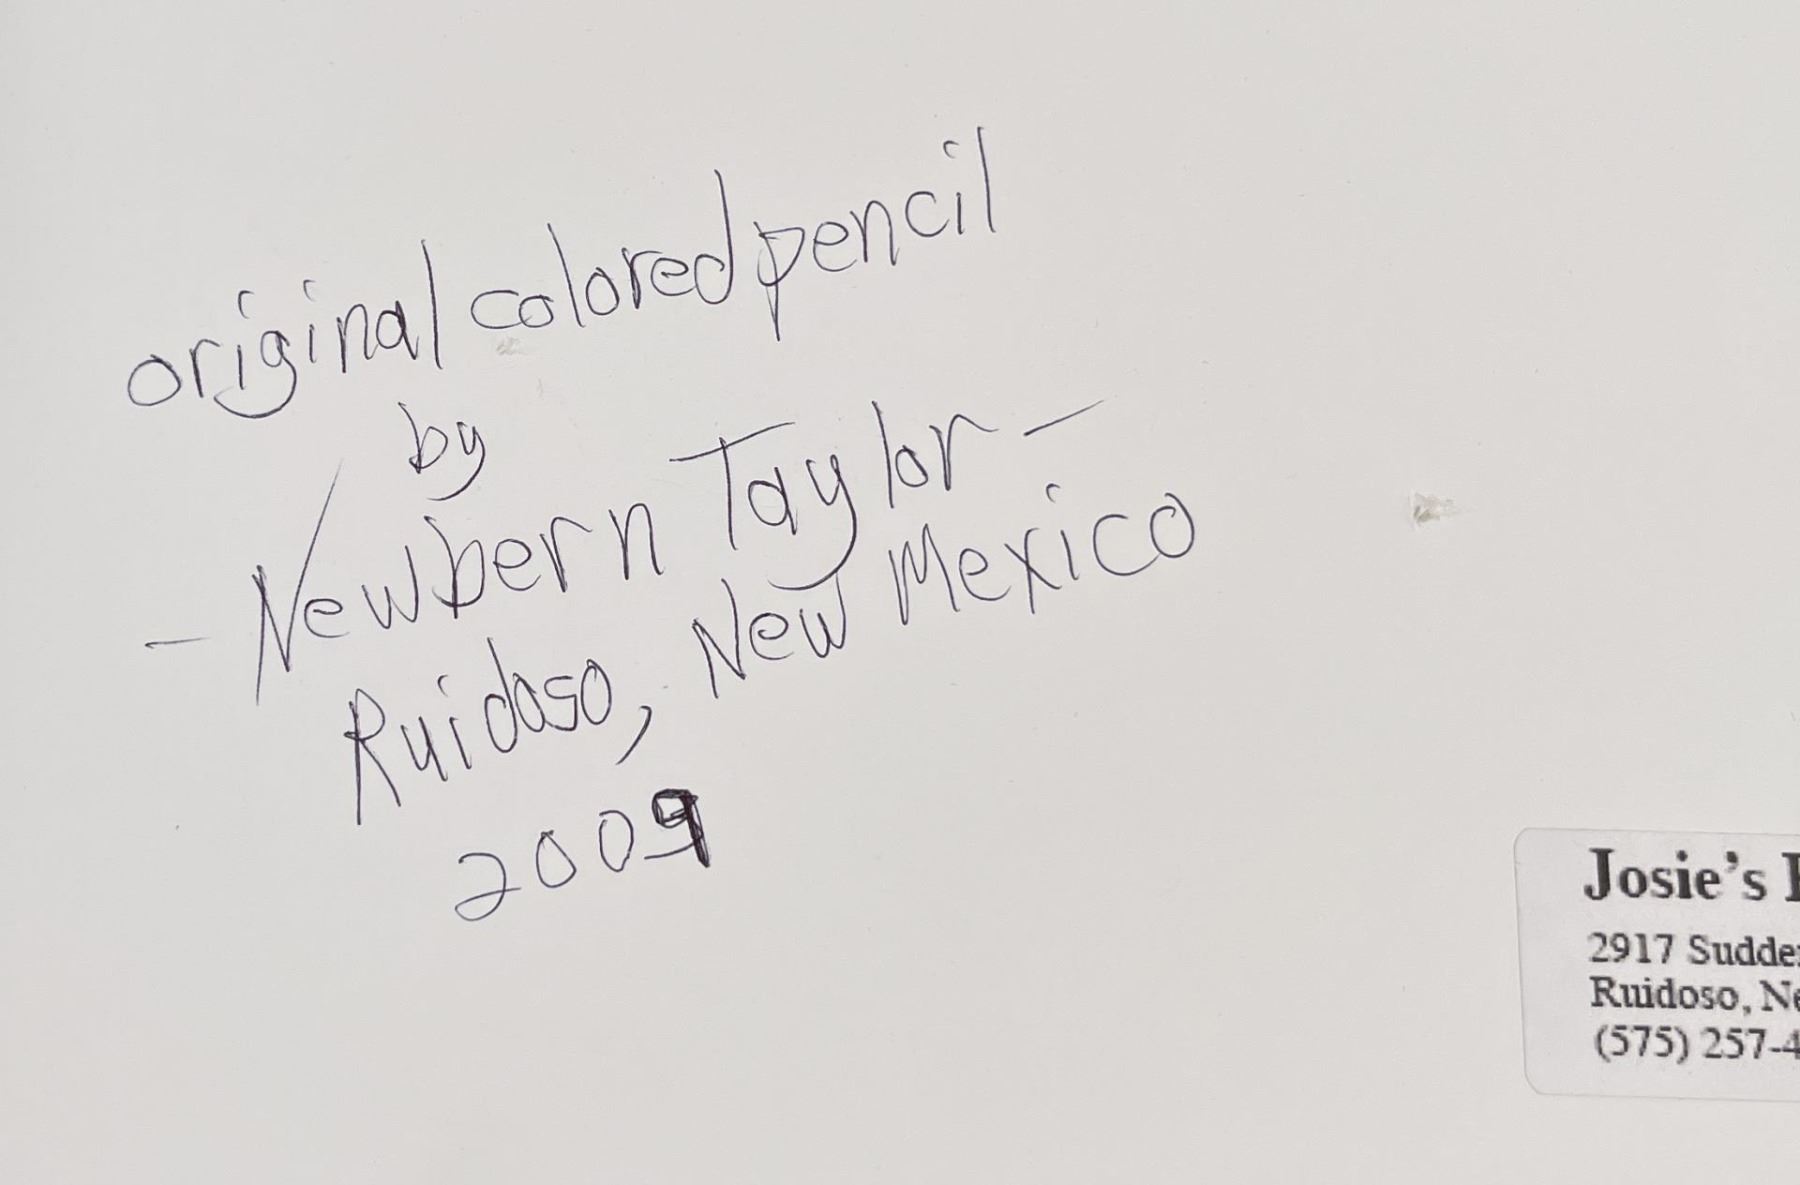 original colored pencil
by
- Newbern Taylor -
Ruidoso, New Mexico
2009
Josie's
2917
Ruidoso,
(575) 257-4